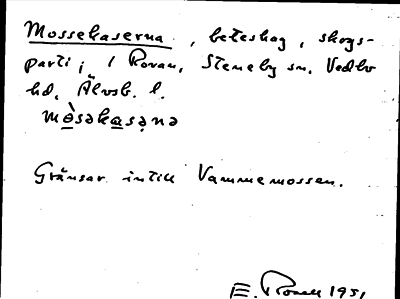 Mossekaserna, beteshag, skogs-
parti i Rovan, Steneby sn. Vedbo
hd. Älvsb. l.
mò̀səkasəṇə
Gränsar intill Vammemossen.
E. 1951